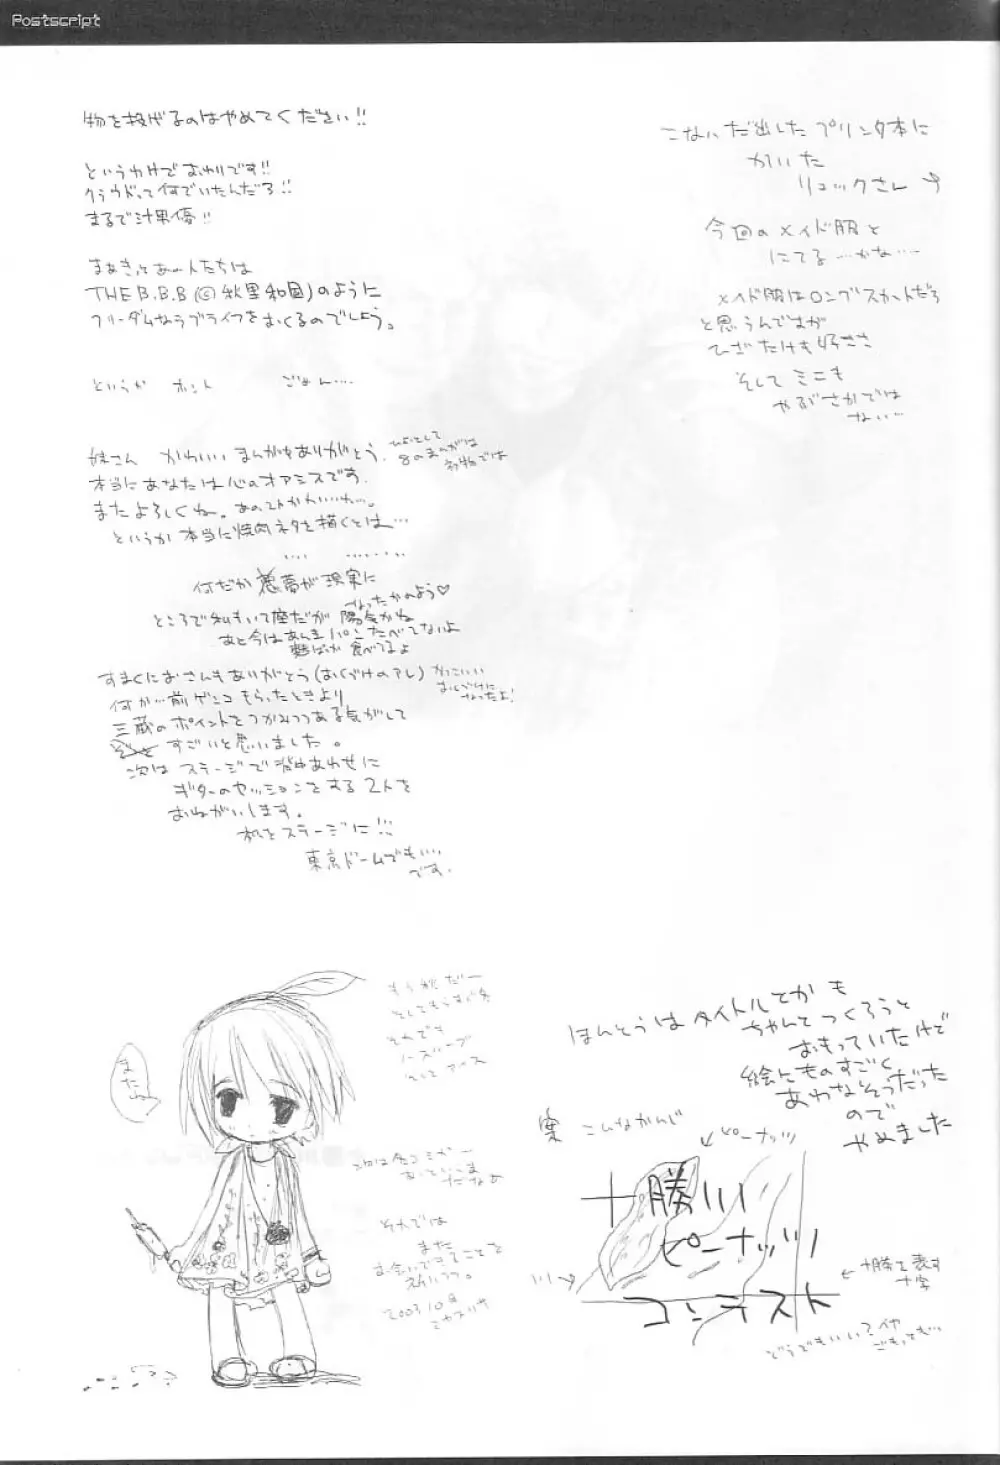 Postscript
物を投げるのはやめてください!!
というわけでおわりです!!
クラウドって何でいたんだろ!!
まるで汁男優!!
まぁきっとあの人たちは
THE B.B.B (©秋里和国)のように
フリーダムなラブライフをおくるのでしょう。
というか ホント ごめん....
妹さん かわいいまんがをありがとう。
ひょっとして
8のまんがは
初物では
本当にあなたは心のオアシスです。
またよろしくね。あの2人かわいいわ〜。
というか本当に焼肉ネタを描くとは…
.... ........
何だか悪夢が現実に
なったかのよう♡
ところで私もいて座だが 陽気かね
あと今はあんまパンたべてないよ
麺ばっか食べてるよ
すまくにおさんもありがとう(おくづけのアレ)
かっこいい
おくづけに
なったよ!
何か…前ゲンコもらったときより
三蔵のポイントをつかみつつある気がして
すごいと思いました。
次はステージで背中あわせに
ギターのセッションをする2人を
おねがいします。
私をステージに!!!
東京ドームでもいい
です。
こないだ出したプリンタ本に
かいた
リュックさん
今回のメイド服と
にてる…かな…
メイド服はロングスカートだろ
と思うんですが
ひざたけも好きさ
そしてミニも
やぶさかでは
ない…
またね
もう秋だー
そしてもうすぐ冬
それでも
ノースリーブ
そしてアイス
それでは
また
お会いできることを
祈りつつ。
2003.10月
ほんとうはタイトルとかも
ちゃんとつくろうと
おもっていたけど
絵とものすごく
あわなそうだった
ので
やめました
案 こんなかんじ
ピーナッツ
十勝川
ピーナッツ
コンテスト
川
十勝を表す
十字
どうでもいい